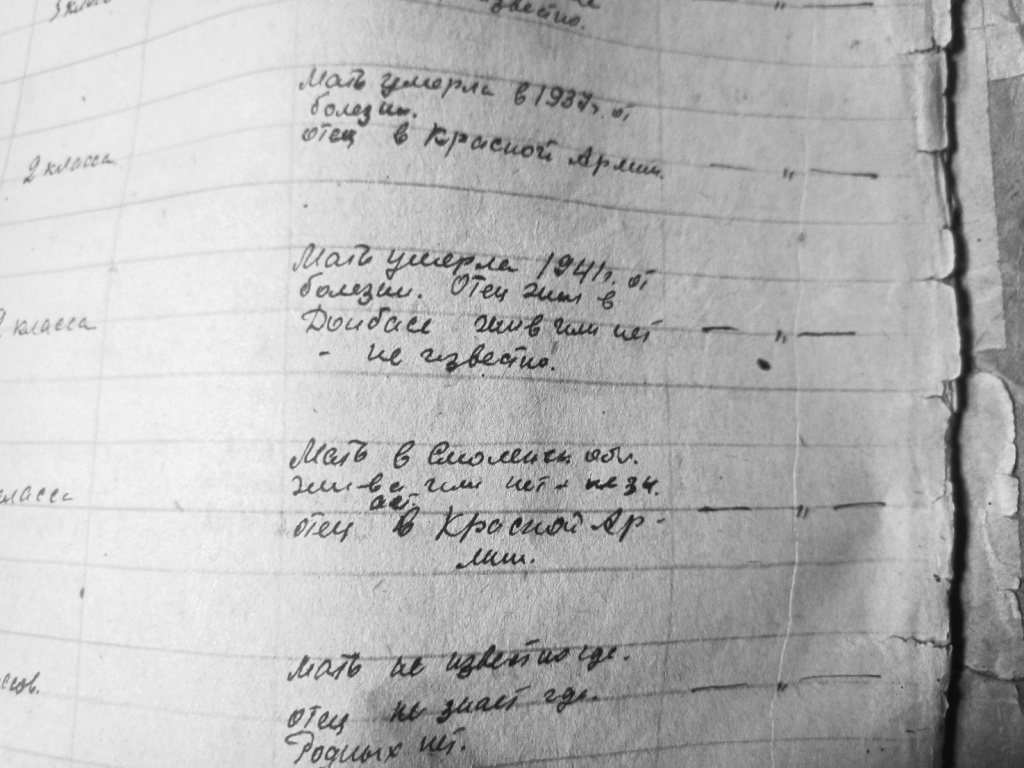 3 класс
известно. — " —
Мать умерла в 1937г. от
болезни.
2 класса отец в Красной Армии. — " —
Мать умерла 1941г. от
болезни. Отец жил в
класса Донбасе жив или нет — " —
- не известно.
Мать в Смоленск обл.
класса жива или нет - не зн.
ает.
отец в Красной Ар- — " —
мии.
Мать не известно где.
ссов. отец не знает где. — " —
Родных нет.